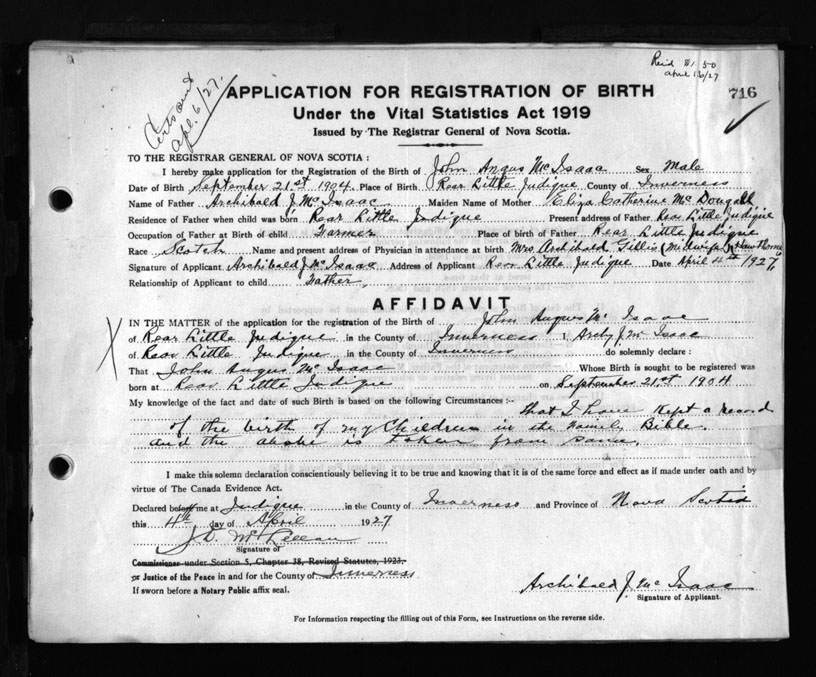 Certs and
Apl. 6/27.
Rec'd $1.50
April 16/27
716
APPLICATION FOR REGISTRATION OF BIRTH
Under the Vital Statistics Act 1919
Issued by The Registrar General of Nova Scotia.
TO THE REGISTRAR GENERAL OF NOVA SCOTIA :
I hereby make application for the Registration of the Birth of John Angus Mc Isaac Sex Male
Date of Birth September 21st 1904 Place of Birth Rear Little Judique County of Inverness
Name of Father Archibald J. Mc Isaac Maiden Name of Mother Eliza Catherine Mc Dougall
Residence of Father when child was born Rear Little Judique Present address of Father Rear Little Judique
Occupation of Father at Birth of child Farmer Place of birth of Father Rear Little Judique
Race Scotch Name and present address of Physician in attendance at birth Mrs Archibald Gillis (Midwife) Hawthorne
Signature of Applicant Archibald J Mc Isaac Address of Applicant Rear Little Judique Date April 4th 1927
Relationship of Applicant to child Father
AFFIDAVIT
IN THE MATTER of the application for the registration of the Birth of John Angus Mc Isaac
of Rear Little Judique in the County of Inverness I Archy J. Mc Isaac
of Rear Little Judique in the County of Inverness do solemnly declare :
That John Angus Mc Isaac Whose Birth is sought to be registered was
born at Rear Little Judique on September 21st 1904
My knowledge of the fact and date of such Birth is based on the following Circumstances :- that I have kept a record
of the birth of my Children in the Family Bible.
and the above is taken from same.
I make this solemn declaration conscientiously believing it to be true and knowing that it is of the same force and effect as if made under oath and by
virtue of The Canada Evidence Act.
Declared before me at Judique in the County of Inverness and Province of Nova Scotia
this 4th day of April 1927
J. D. Mc
Signature of
Commissioner under Section 5, Chapter 38, Revised Statutes, 1923,
or Justice of the Peace in and for the County of Inverness
If sworn before a Notary Public affix seal.
Archibald J. Mc Isaac
Signature of Applicant.
For Information respecting the filling out of this Form, see Instructions on the reverse side.